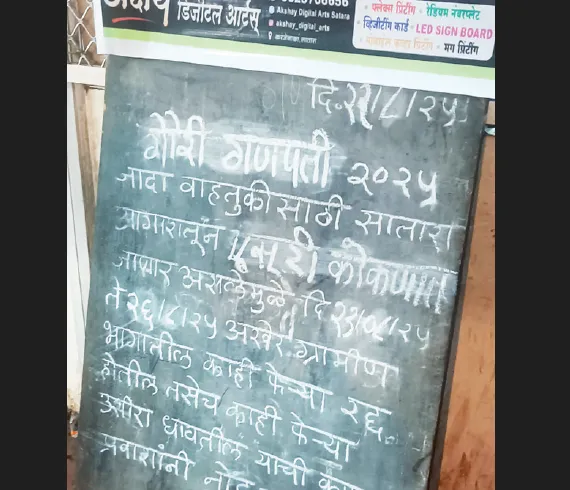 अक्षय डिजीटल आर्ट्स
Akshay Digital Arts Satara
akshay_digital_arts
फ्लेक्स प्रिंटींग • रेडियम नंबरप्लेट
• व्हिजीटींग कार्ड • LED SIGN BOARD
प्रिंटींग • मग प्रिंटींग
गौरी गणपती २०२५
जादा वाहतुकीसाठी सातारा
आगारातून एसटी कोकणात
जाणार असल्यामुळे दि २३/०८/२५
ते २६/८/२५ अखेर ग्रामीण
भागातील काही फेऱ्या रद्द
होतील तसेच काही फेऱ्या
उशीरा धावतील याची
प्रवाशांनी